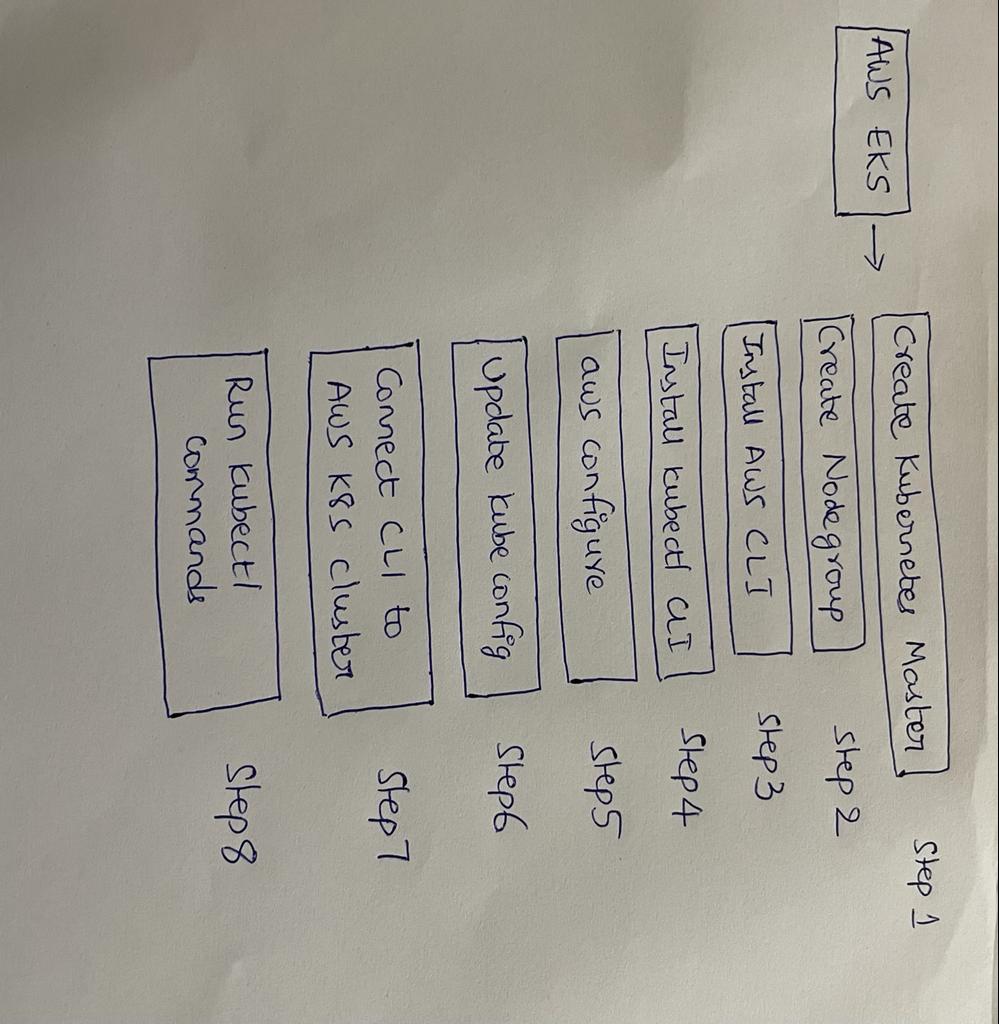 AWS EKS →
Create Kubernetes Master Step 1
Create Nodegroup Step 2
Install AWS CLI Step 3
Install kubectl CLI Step 4
aws configure Step 5
Update kube config Step 6
Connect CLI to
AWS K8S cluster Step 7
Run kubectl
commands Step 8